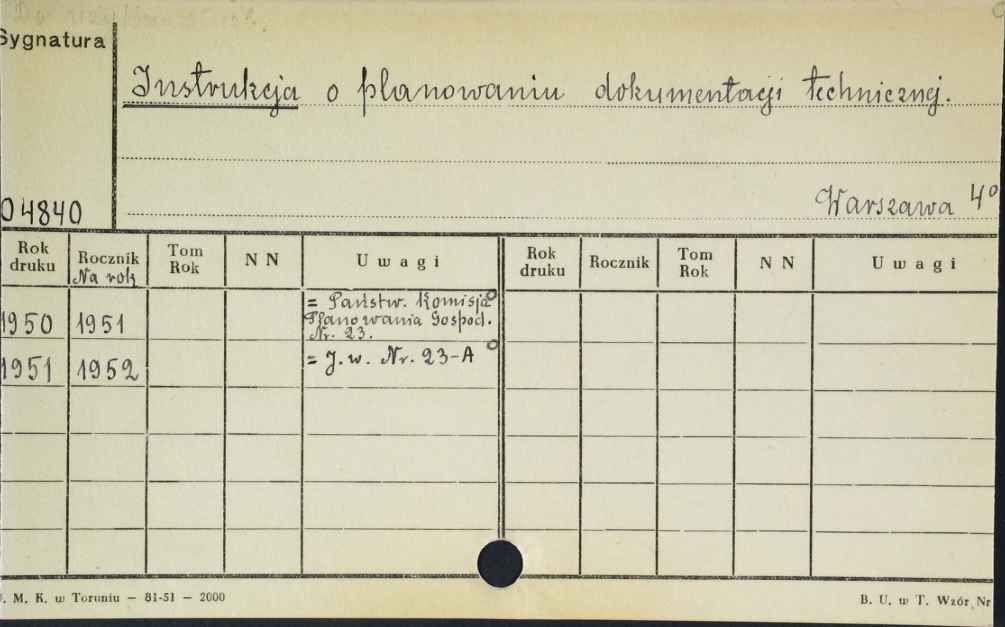 Sygnatura
Instrukcja o planowaniu dokumentacji technicznej.
04840
Warszawa 4°
Rok druku Rocznik Na rok Tom Rok N N Uwagi Rok druku Rocznik Tom Rok N N Uwagi
1950 1951 = Państw. Komisja
Planowania Gospod.
Nr. 23.
1951 1952 = J.w. Nr. 23-A
. M. K. w Toruniu — 81-51 — 2000
B. U. w T. Wzór Nr